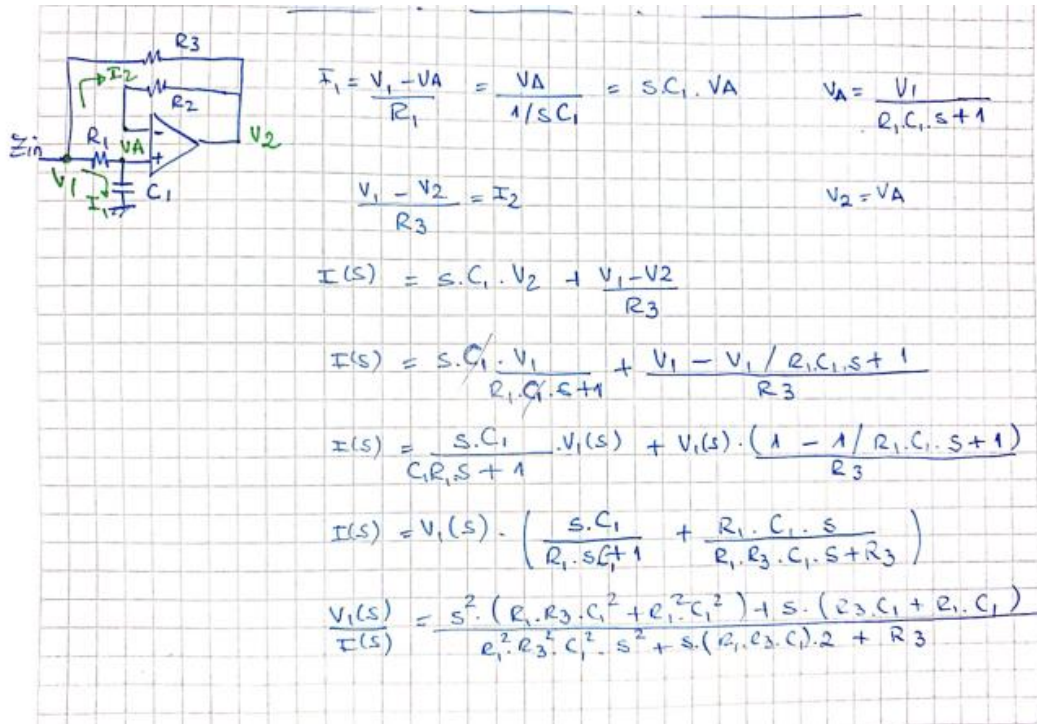 R3
I2
R2
R1 VA V2
Zin
V1 I1 C1
I1 = (V1 - VA) / R1 = VA / (1/sC1) = s.C1.VA VA = V1 / (R1.C1.s+1)
(V1 - V2) / R3 = I2 V2 = VA
I(s) = s.C1.V2 + (V1 - V2) / R3
I(s) = s.C1.V1 / (R1.C1.s+1) + (V1 - V1 / R1.C1.s+1) / R3
I(s) = s.C1 / (C1R1.s + 1) .V1(s) + V1(s).(1 - 1/R1.C1.s+1) / R3
I(s) = V1(s).( s.C1 / (R1.sC1+1) + R1.C1.s / (R1.R3.C1.s+R3) )
V1(s) / I(s) = (s².(R1.R3.C1²+R1².C1²) + s.(R3.C1 + R1.C1)) / (R1².R3².C1².s² + s.(R1.R3.C1).2 + R3)